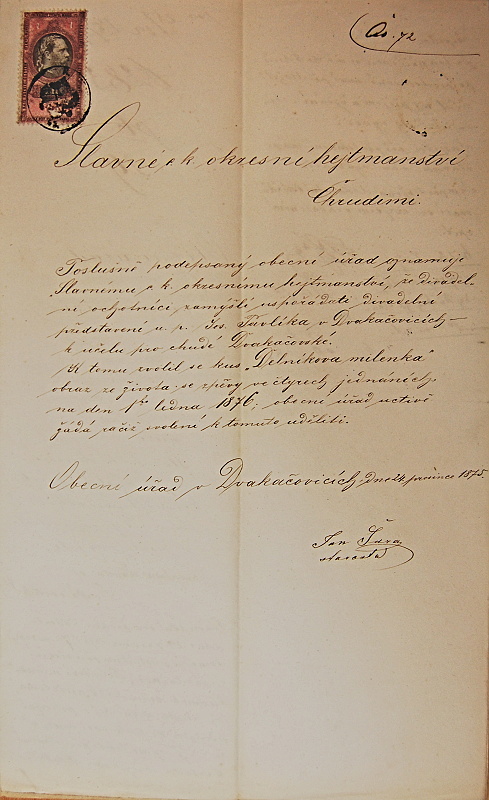 Čís. 72
Slavné c k okresní hejtmanství
Chrudimi.
Poslušně podepsaný obecní úřad oznamuje
Slavnému c. k. okresnímu hejtmanství, že divadel-
ní ochotníci zamýšlí uspořádati divadelní
představení u p. Jos. Pavlíka v Dvakačovicích
k účelu pro chudé Dvakačovské.
K tomu zvolil se kus „Dělníkova milenka"
obraz ze života se zpěvy ve čtyrech jednáních
na den 1ho ledna 1876; obecní úřad uctivě
žádá račiž svolení k tomuto uděliti.
Obecní úřad v Dvakačovicích dne 24 prosince 1875.
Jan
starosta